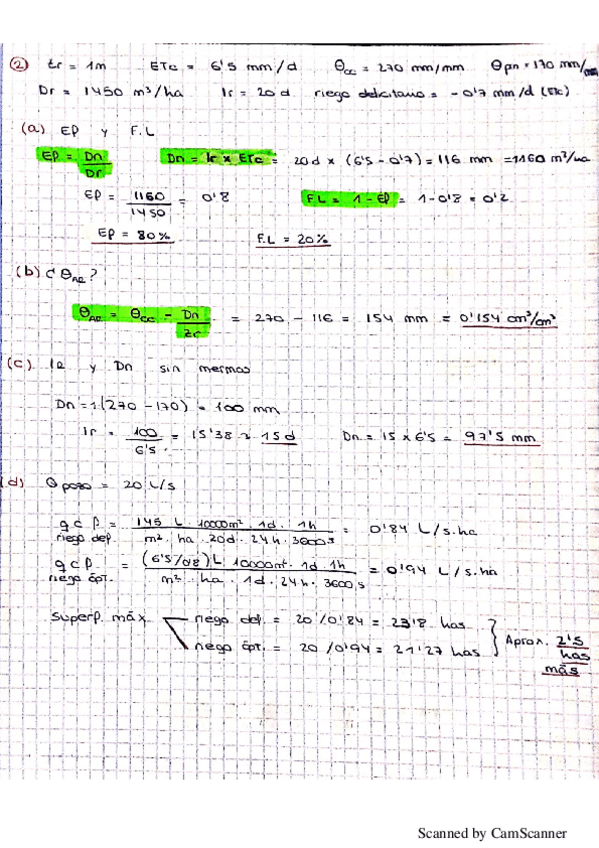 ② tr = 1m ETc = 6'5 mm/d θcc = 270 mm/mm θpn = 170 mm/mm
Dr = 1450 m³/ha Ir = 20 d riego deficitario = -0'7 mm/d (ETc)
(a) EP y F.L
EP = Dn/Dr Dn = Ir x ETc = 20d x (6'5 - 0'7) = 116 mm = 1160 m³/ha
EP = 1160/1450 = 0'8 F.L = 1 - EP = 1 - 0'8 = 0'2
EP = 80% F.L = 20%
(b) ¿θAR?
θAR = θcc - Dn/zr = 270 - 116 = 154 mm = 0'154 cm³/cm³
(c) IR y Dn sin mermas
Dn = 1·(270 - 170) = 100 mm
Ir = 100/6'5 = 15'38 ≈ 15 d Dn = 15 x 6'5 = 97'5 mm
(d) Q pozo = 20 L/s
qcp riego def. = 145 L · 10000m² · 1d · 1h / m² · ha · 20d · 24h · 3600s = 0'84 L/s.ha
qcp riego ópt. = (6'5/0'8) L · 10000m² · 1d · 1h / m² · ha · 1d · 24h · 3600s = 0'94 L/s.ha
Superf. máx riego def. = 20/0'84 = 23'8 has
riego ópt. = 20/0'94 = 21'27 has
Aprox. 2'5 has más
Scanned by CamScanner